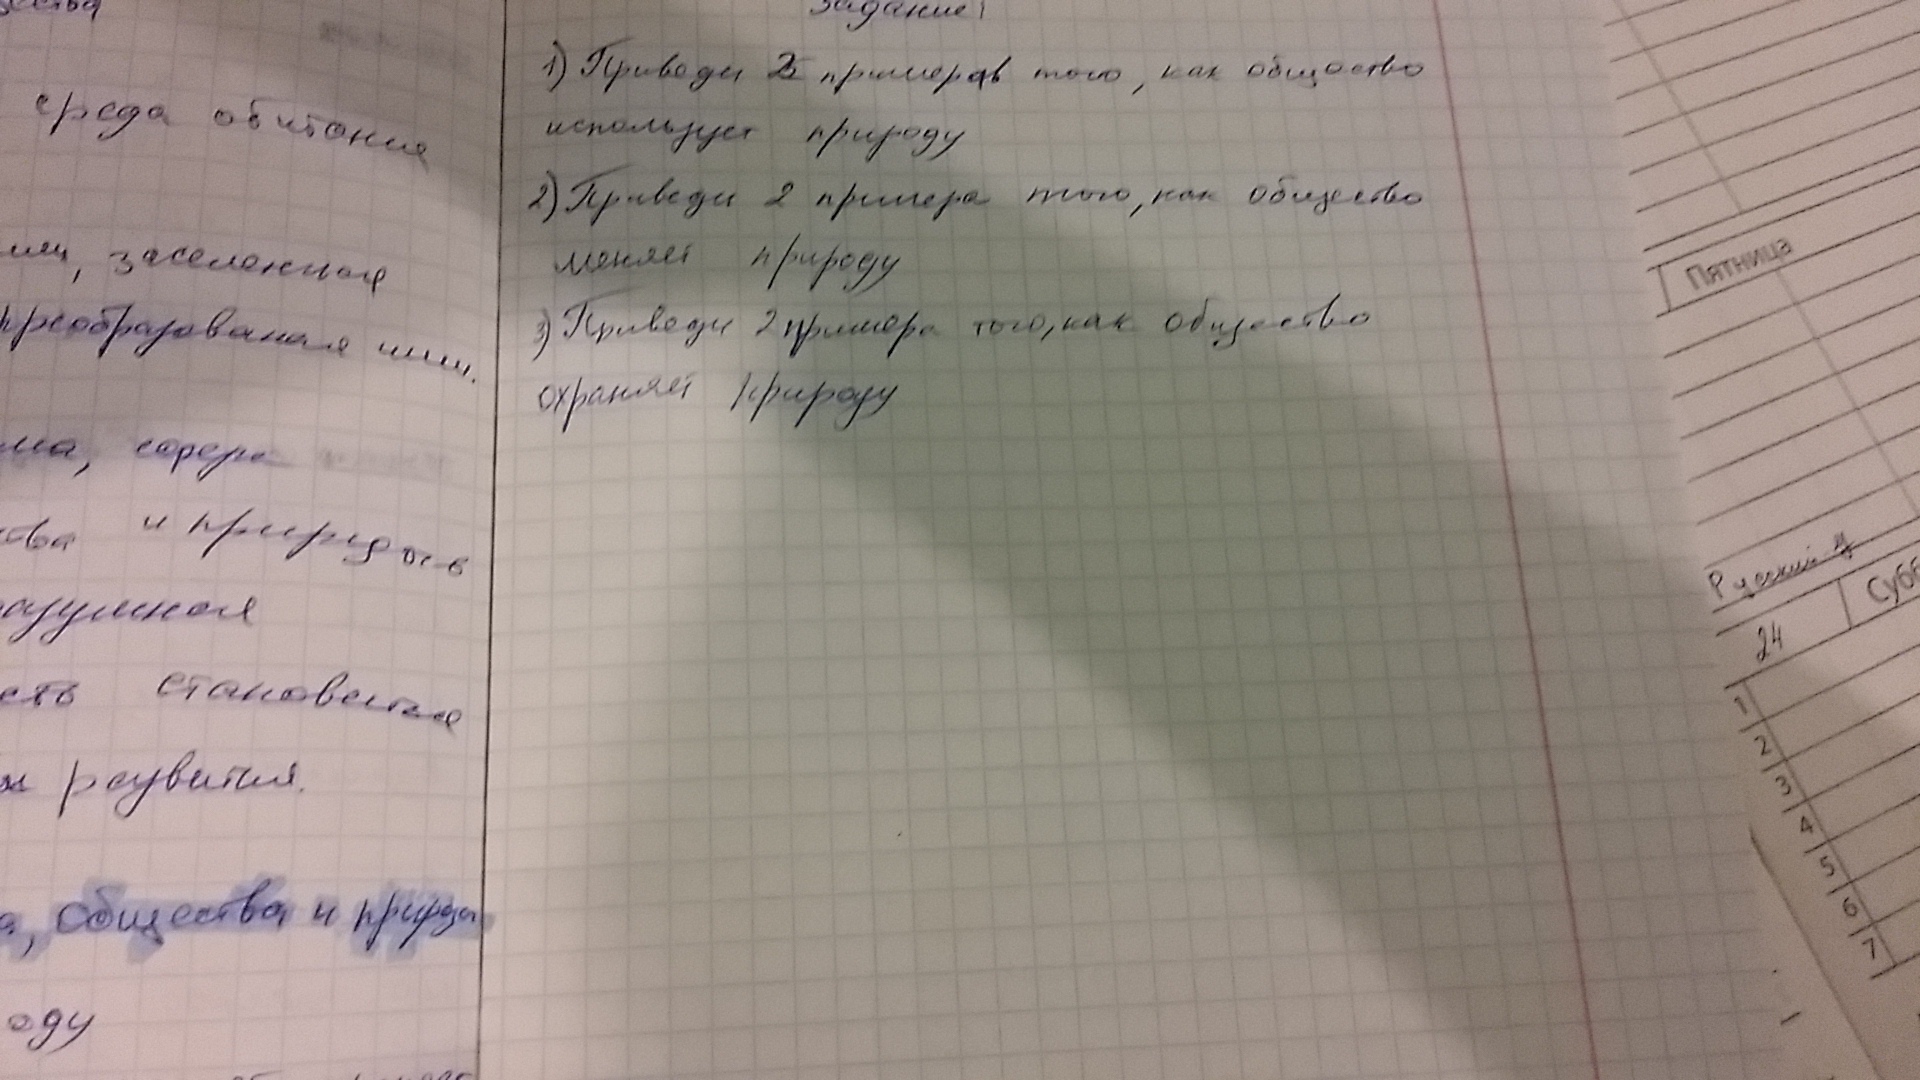 щества
среда обитания
заселенная
преобразованая ими.
сфера
ства и природы в
разумная
становится
развития.
общества и природы
оду
Задание:
1) Приведи 2 примера того, как общество
использует природу
2) Приведи 2 примера того, как общество
меняет природу
3) Приведи 2 примера того, как общество
охраняет природу
Пятница
Русский я
Субб
24
1
2
3
4
5
6
7